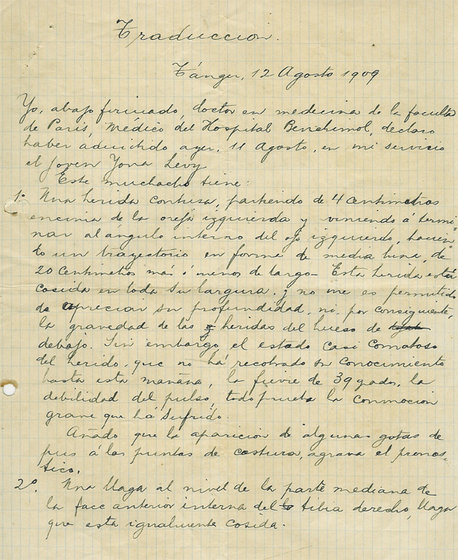 Traduccion.
Tánger, 12 Agosto 1909
Yo, abajo firmado, doctor en medicina de la faculta
de Paris, Médico del Hospital Benchimol, declaro
haber admitido ayer, 11 Agosto, en mi servicio
el joven Yona Levy
Este muchacho tiene:
1º Una herida contusa, partiendo de 4 centimetros
encima de la oreja izquierda y viniendo á termi-
nar al angulo interno del ojo izquierdo, hacien-
do un trayectorio en forma de media luna, de
20 centimetros más ó menos de largo- Esta herida está
cosida en toda su largura, y no me es permitido
de apreciar su profundidad, ni, por consiguiente,
la gravedad de las heridas del hueso de
debajo. Sin embargo el estado casi comatoso
del herido, que no há recobrado su conocimiento
hasta esta mañana, la fievre de 39 gados, la
debilidad del pulso, todo prueta la conmocion
grave que há sufrido.
Añado que la aparicion de algunas gotas de
pus á los puntas de costura, agrava el pronos-
tico.
2º. Una llaga al nivel de la parte mediana de
la face anterior interna del tibia derecho, llaga
que está igualmente cosida.